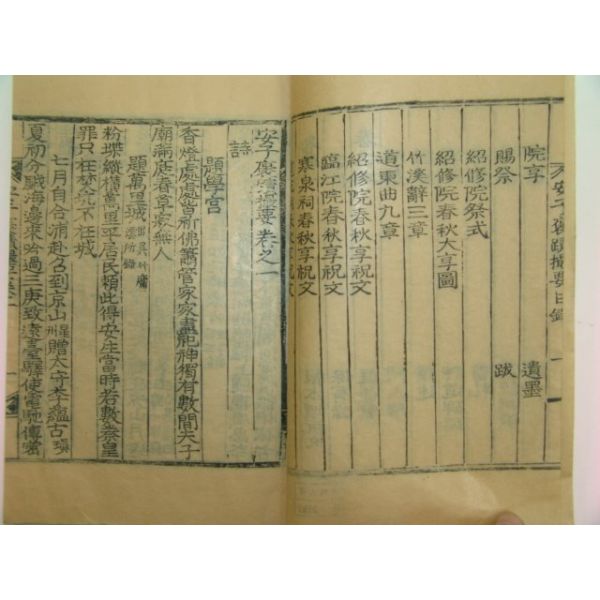 院享 遺墨
賜祭 跋
紹修院祭式
紹修院春秋大享圖
竹溪辭三章
道東曲九章
紹修院春秋享祝文
臨江院春秋享祝文
寒泉祠春秋享祝文
卷之一
詩
題學宮
香燈處處皆祈佛簫管家家盡祀神獨有數間夫子
廟滿庭春草寂無人
題萬里城
粉堞縱橫萬里平居民賴此得安生當時若數秦皇
罪只在焚坑不在城
七月自合浦赴召到京山 贈太守李蘊古
夏初分戢海邊來吟過三庚致遠臺驛使電馳傳密